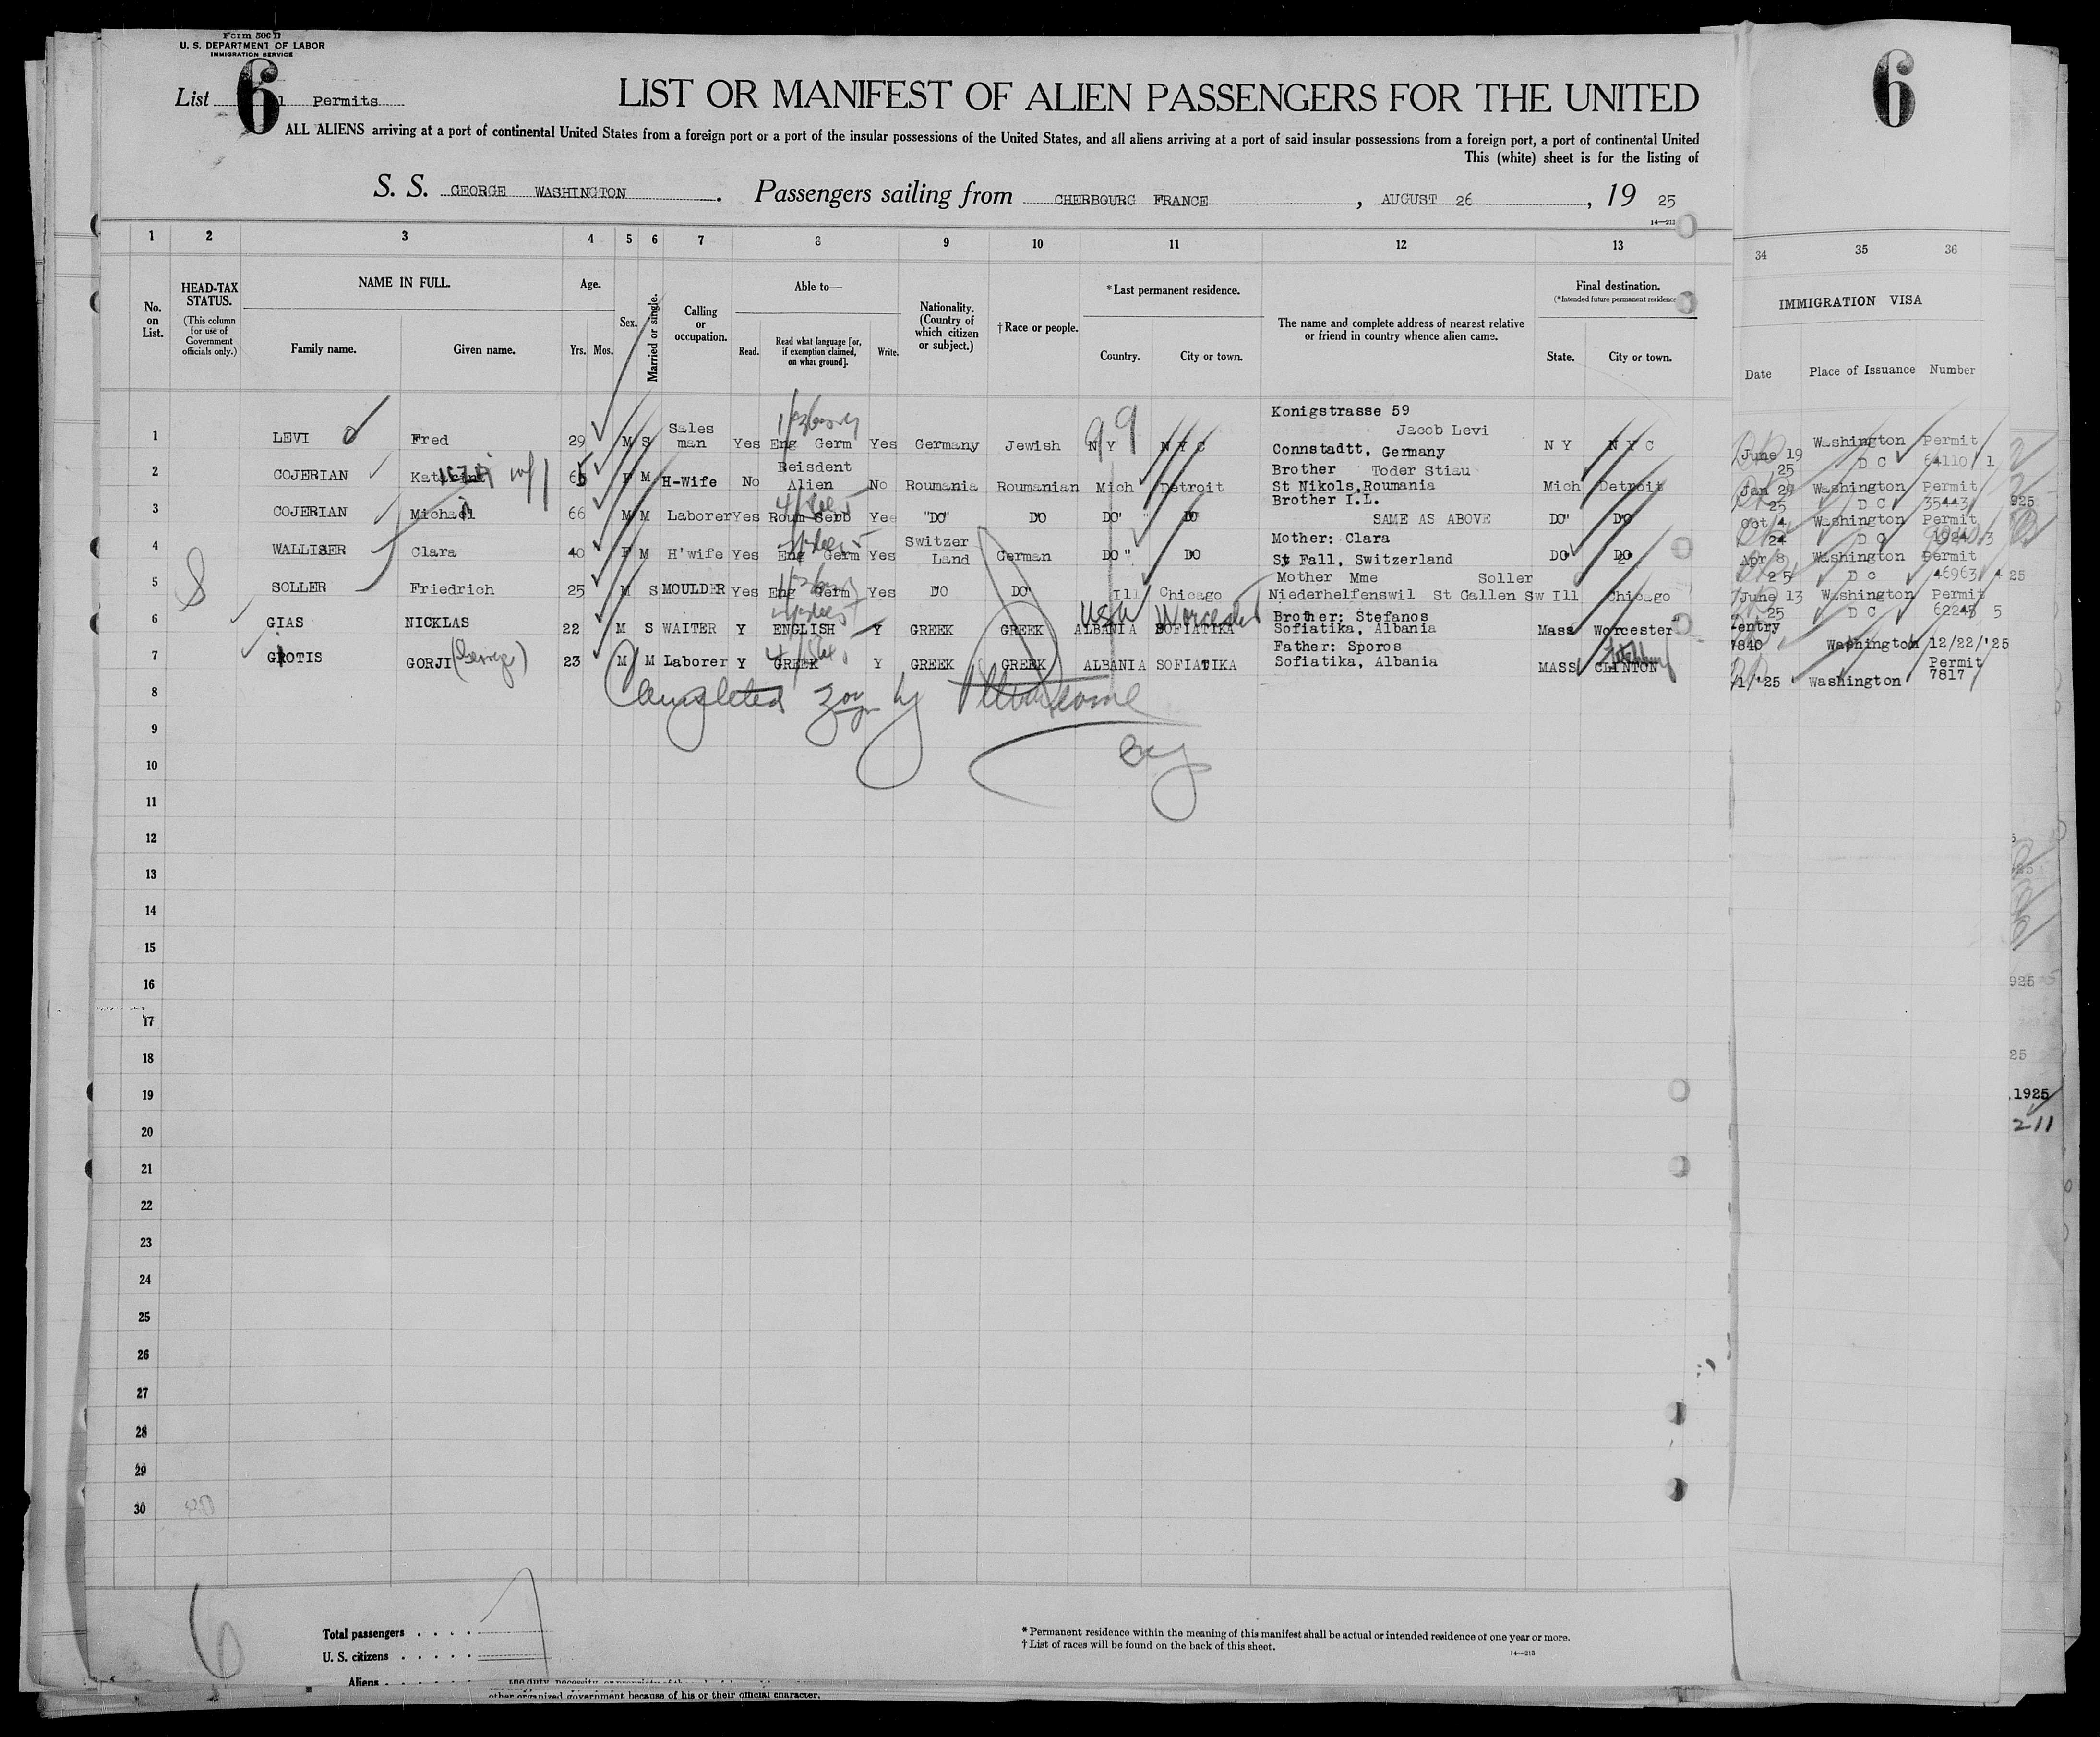 Form 500 D
U. S. DEPARTMENT OF LABOR
IMMIGRATION SERVICE
6
List 1 Permits
LIST OR MANIFEST OF ALIEN PASSENGERS FOR THE UNITED
ALL ALIENS arriving at a port of continental United States from a foreign port or a port of the insular possessions of the United States, and all aliens arriving at a port of said insular possessions from a foreign port, a port of continental United
This (white) sheet is for the listing of
S. S. GEORGE WASHINGTON. Passengers sailing from CHERBOURG FRANCE, AUGUST 26, 19 25
14—213
6
1 2 3 4 5 6 7 8 9 10 11 12 13 34 35 36
No. on List.
HEAD-TAX STATUS.
(This column for use of Government officials only.)
NAME IN FULL.
Family name. Given name.
Age.
Yrs. Mos.
Sex.
Married or single.
Calling or occupation.
Able to—
Read. Read what language [or, if exemption claimed, on what ground]. Write.
Nationality. (Country of which citizen or subject.)
†Race or people.
*Last permanent residence.
Country. City or town.
The name and complete address of nearest relative or friend in country whence alien came.
Final destination.
(*Intended future permanent residence
State. City or town.
IMMIGRATION VISA
Date Place of Issuance Number
Konigstrasse 59
Sales Jacob Levi
1 LEVI Fred 29 M S man Yes Eng Germ Yes Germany Jewish N Y N Y C Connstadtt, Germany N Y N Y C June 19 25 Washington D C Permit 64110 1
Reisdent Brother Toder Stiau
2 COJERIAN 65 F M H-Wife No Alien No Roumania Roumanian Mich Detroit St Nikols, Roumania Mich Detroit Jan 29 25 Washington D C Permit 35443
Brother I.L.
3 COJERIAN Michael 66 M M Laborer Yes Roum Serb Yes "DO" DO DO" DO SAME AS ABOVE DO" DO Oct 4 24 Washington D C Permit 1924 3
Switzer Mother: Clara
4 WALLISER Clara 40 F M H'wife Yes Eng Germ Yes Land German DO " DO St Fall, Switzerland DO DO Apr 8 25 Washington D C Permit 46963 4
Mother Mme Soller
5 SOLLER Friedrich 25 M S MOULDER Yes Eng Germ Yes DO DO Ill Chicago Niederhelfenswil St Gallen Sw Ill Chicago June 13 25 Washington D C Permit 62245 5
USA Worcester Brother: Stefanos
6 GIAS NICKLAS 22 M S WAITER Y ENGLISH Y GREEK GREEK ALBANIA SOFIATIKA Sofiatika, Albania Mass Worcester entry 7840 Washington 12/22/'25
Father: Sporos
7 GIOTIS GORJI (George) 23 M M Laborer Y GREEK Y GREEK GREEK ALBANIA SOFIATIKA Sofiatika, Albania MASS CLINTON /1/'25 Washington Permit 7817
8 Completed by
9
10
11
12
13
14
15
16
17
18
19
20
21
22
23
24
25
26
27
28
29
30
925
25
925
25
1925
211
6
Total passengers . . . . 7
U. S. citizens . . . . .
Aliens . . . . . .
* Permanent residence within the meaning of this manifest shall be actual or intended residence of one year or more.
† List of races will be found on the back of this sheet.
14—213
other organized government because of his or their official character.